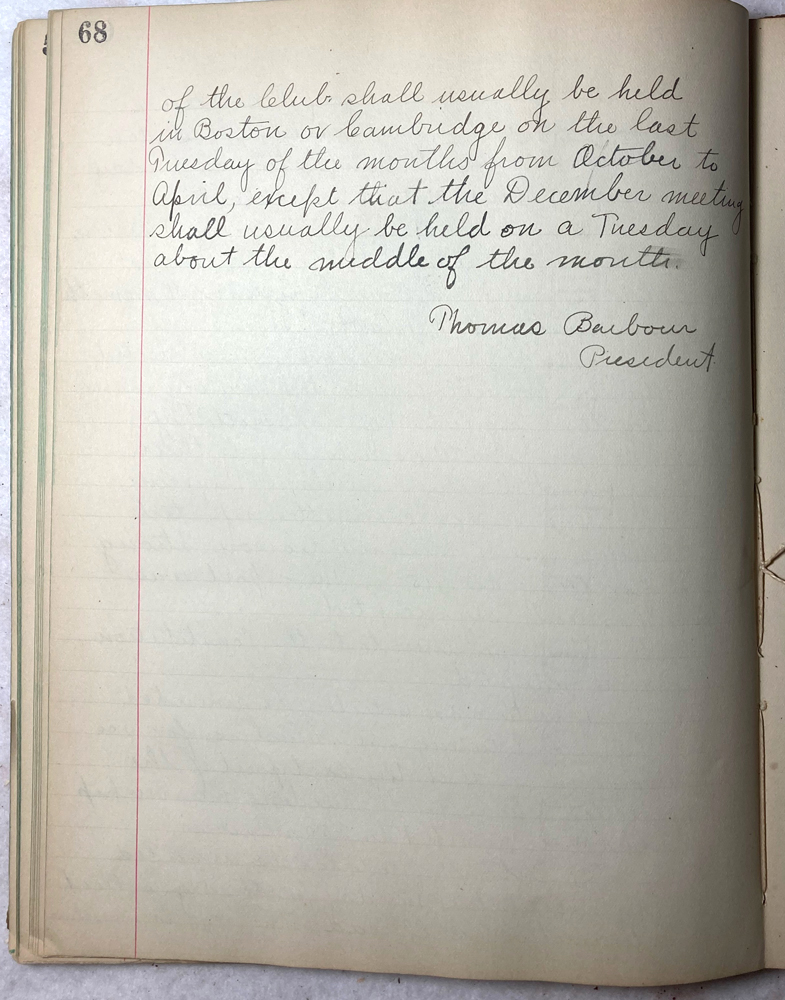 68
of the Club shall usually be held
in Boston or Cambridge on the last
Tuesday of the months from October to
April, except that the December meeting
shall usually be held on a Tuesday
about the middle of the month.
Thomas Barbour
President